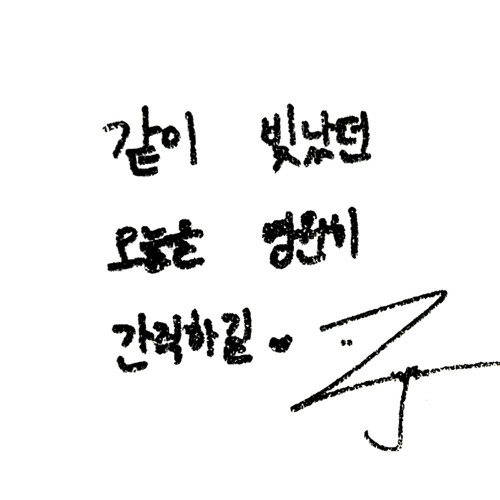 같이 빛났던
오늘을 영원히
간직하길 ♥